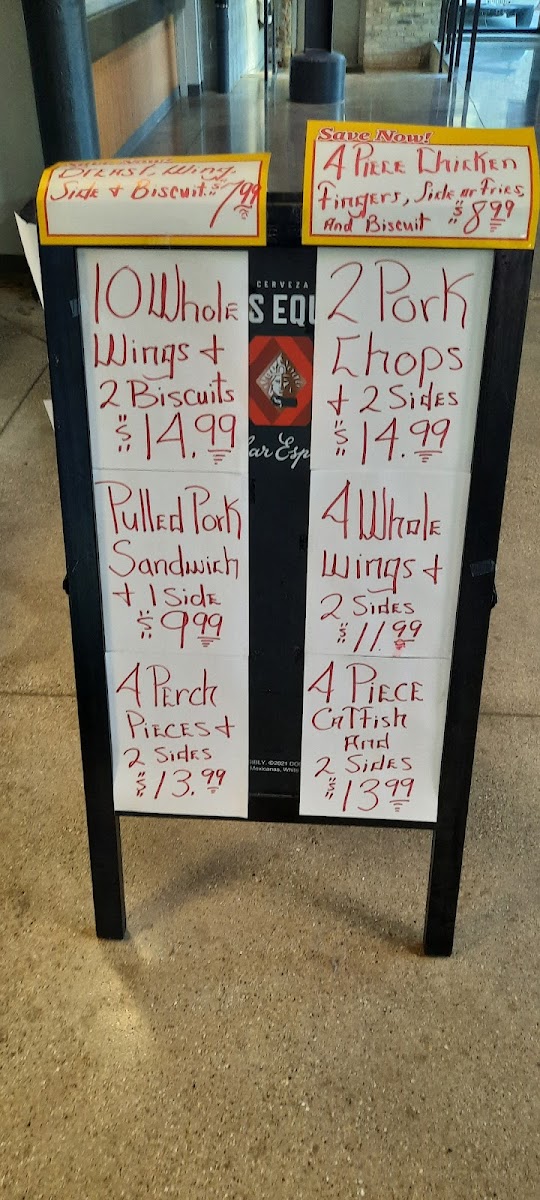 Breast, Wing,
Side & Biscuit $7.99
Save Now!
4 Piece Chicken
Fingers, Side or Fries,
And Biscuit $8.99
10 Whole
Wings &
2 Biscuits
$14.99
2 Pork
Chops
& 2 Sides
$14.99
Pulled Pork
Sandwich
& 1 Side
$9.99
4 Whole
Wings &
2 Sides
$11.99
4 Perch
Pieces &
2 Sides
$13.99
4 Piece
Catfish
And
2 Sides
$13.99
CERVEZA
S EQU
ar Esp
©2021